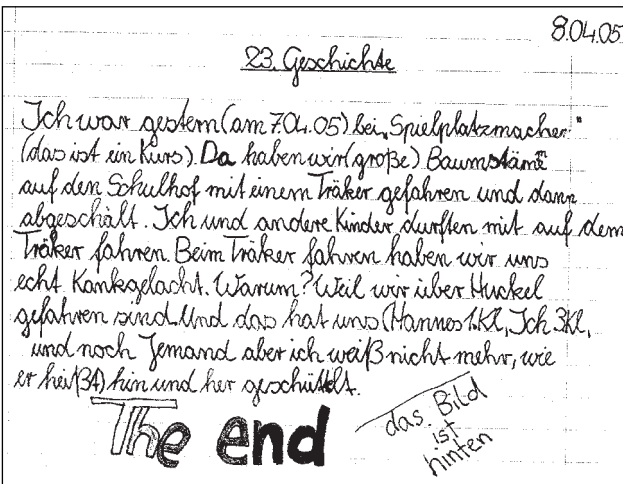 8.04.05
23. Geschichte
Ich war gestern (am 7.04.05) bei „Spielplatzmacher"
(das ist ein Kurs). Da haben wir (große) Baumstäme
auf den Schulhof mit einem Träker gefahren und dann
abgeschält. Ich und andere Kinder durften mit auf dem
Träker fahren. Beim Träker fahren haben wir uns
echt Kankgelacht. Warum? Weil wir über Huckel
gefahren sind. Und das hat uns (Hannes 1.Kl, Ich 3Kl,
und noch Jemand aber ich weiß nicht mehr, wie
er heißt) hin und her geschüttelt.
The end
das Bild
ist
hinten